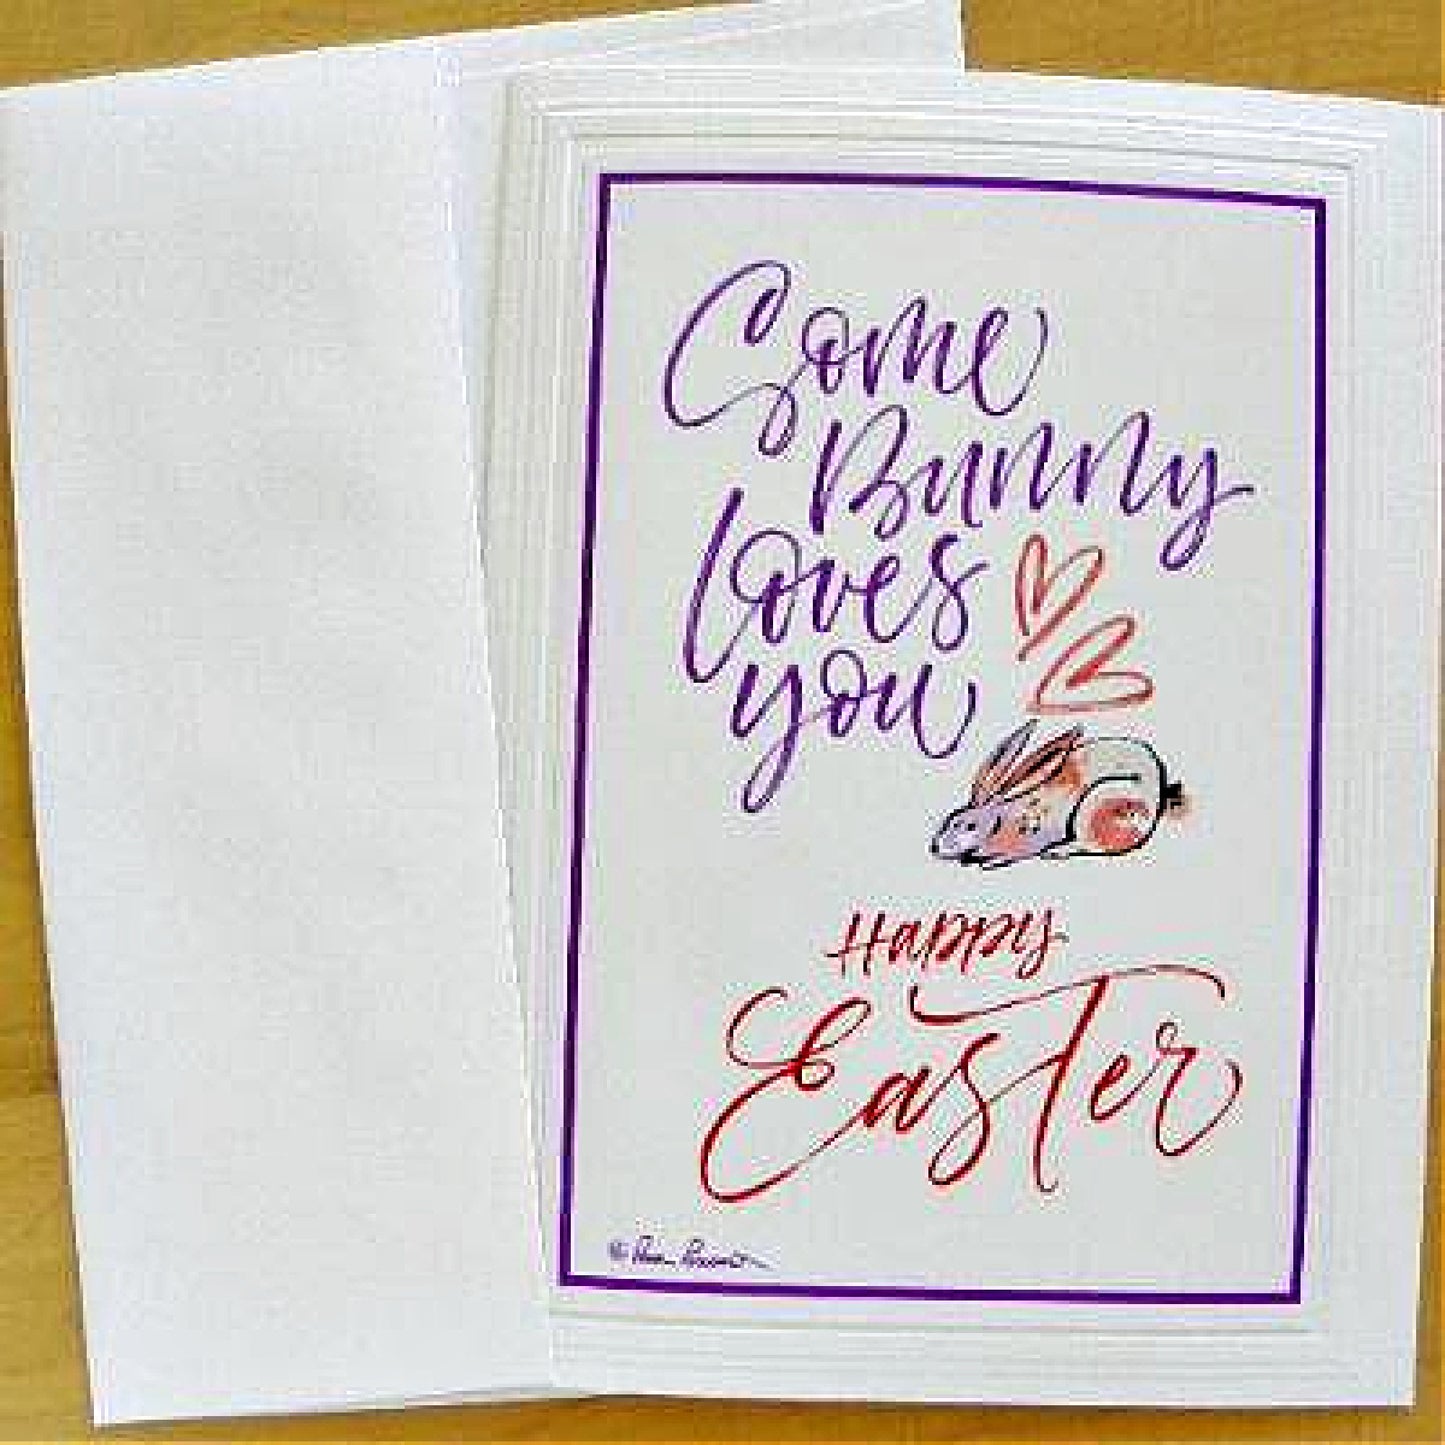 Some
Bunny
loves
you
Happy
Easter
©